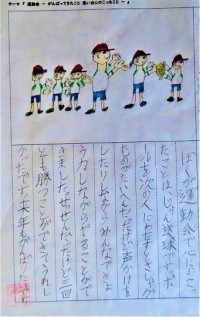 テーマ「運動会 ー がんばってきたこと 思い出にのこったこと ー」
ぼくが運動会で心にのこっ
たことは、球です。
ルを次の人にわたすとき
だけど声かけを
したりしながら、みんなできょ
う力しながらやることがで
きました。せっせんだったけど三回
とも勝つことができてうれし
かったです。来年もがんばりたい